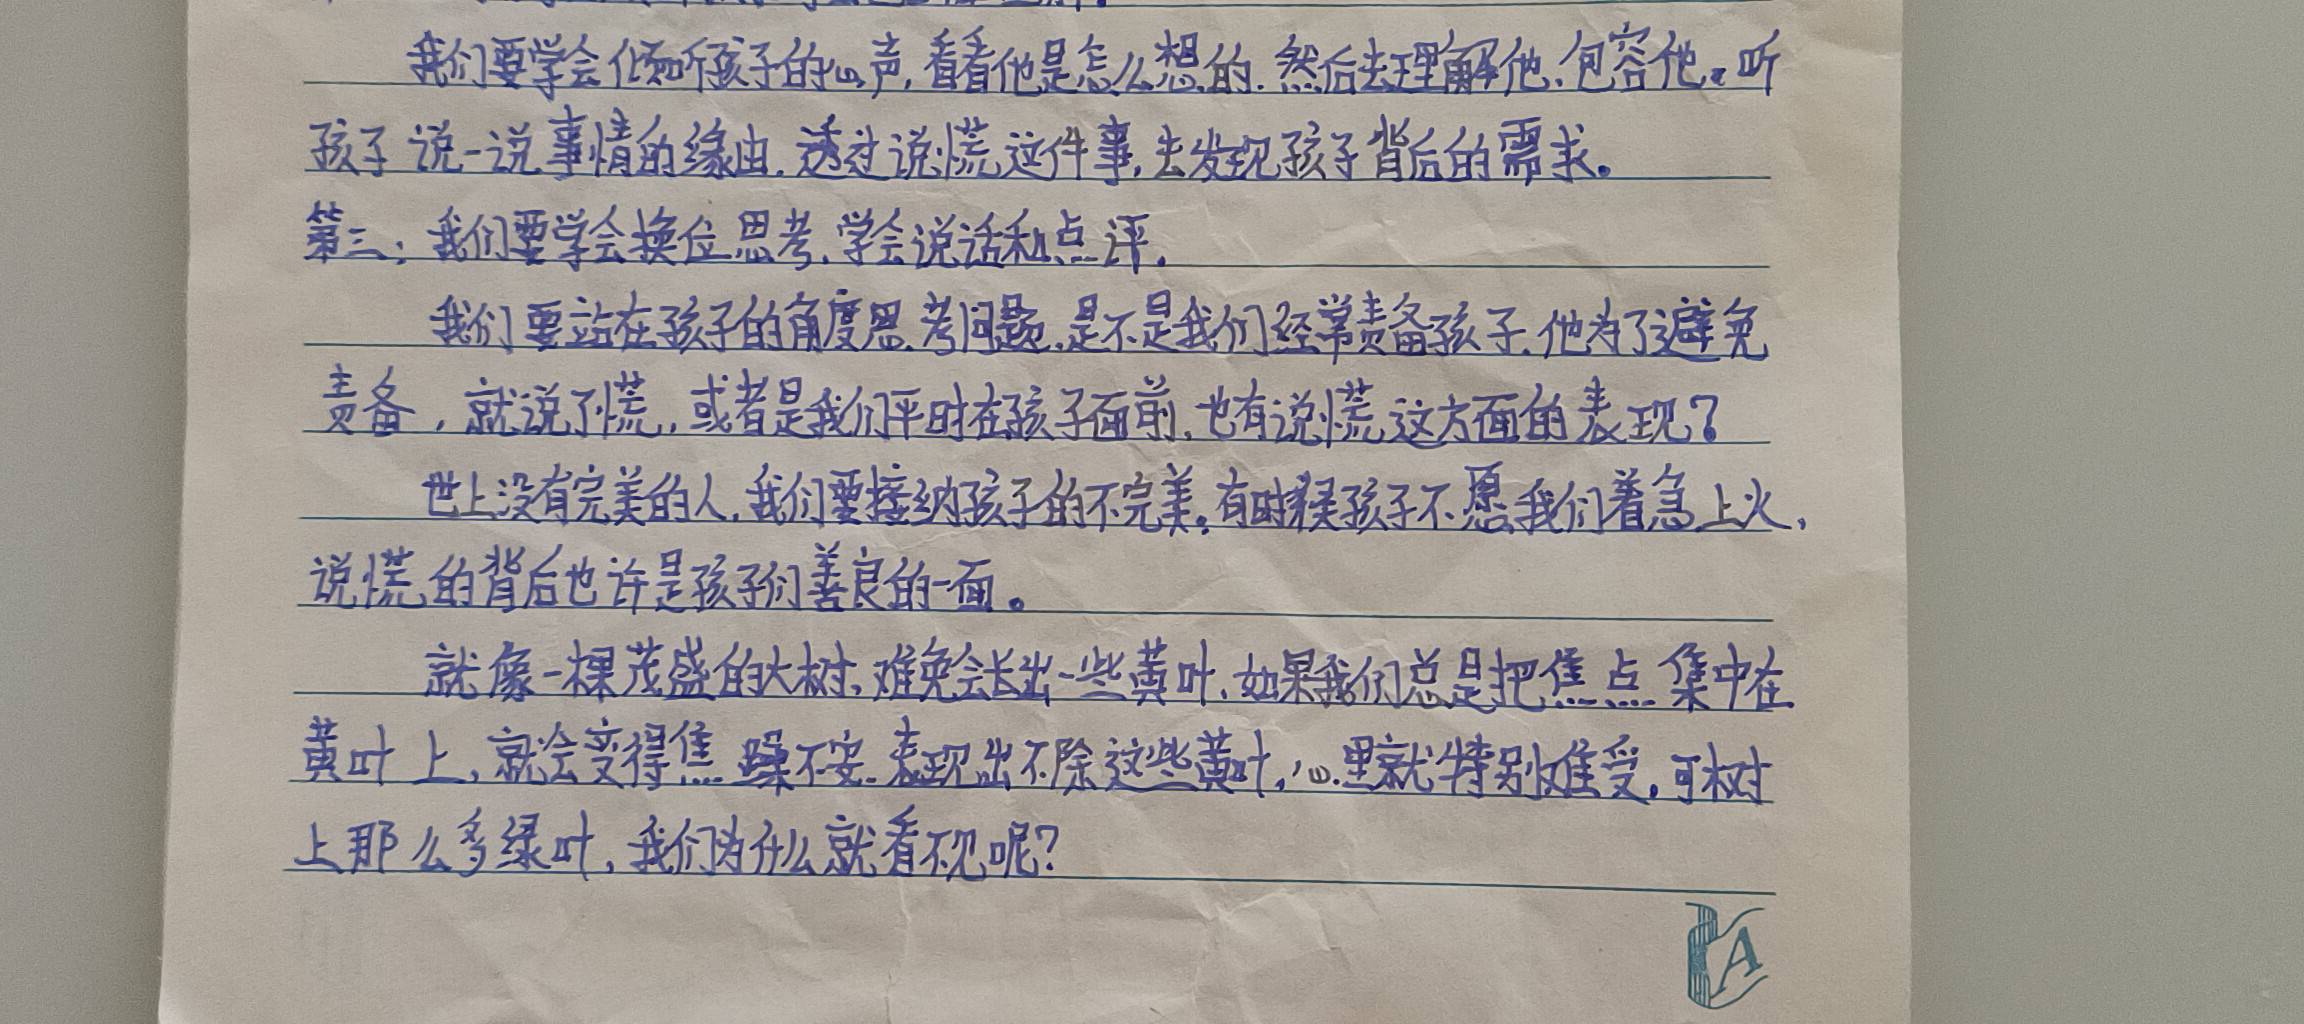 我们要学会倾听孩子的心声,看看他是怎么想的.然后去理解他、包容他。听
孩子说一说事情的缘由.透过说慌这件事,去发现孩子背后的需求。
第三:我们要学会换位思考.学会说话和点评.
我们要站在孩子的角度思考问题.是不是我们经常责备孩子.他为了避免
责备,就说了慌,或者是我们平时在孩子面前,也有说慌这方面的表现?
世上没有完美的人,我们要接纳孩子的不完美。有时候孩子不愿我们着急上火,
说慌的背后也许是孩子们善良的一面。
就像一棵茂盛的大树,难免会长出一些黄叶,如果我们总是把焦点集中在
黄叶上,就会变得焦躁不安.表现出不除这些黄叶,心里就特别难受。可树
上那么多绿叶,我们为什么就看不见呢?
A